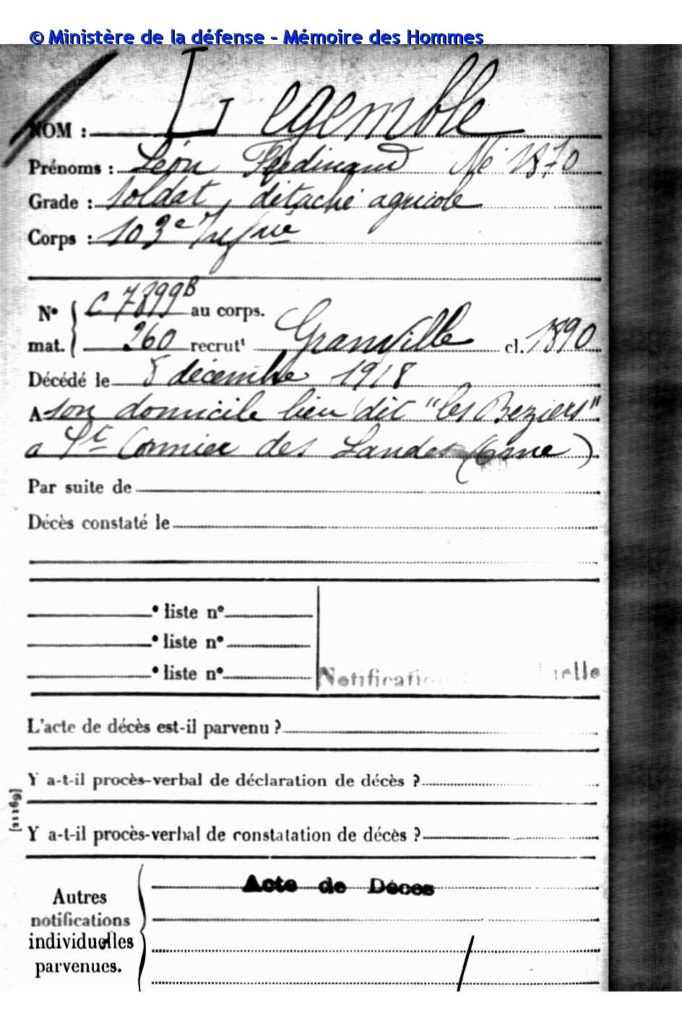 © Ministère de la défense - Mémoire des Hommes
NOM : Legemble
Prénoms : Léon Ferdinand Né 1870
Grade : Soldat, détaché agricole
Corps : 103e
No C 7899B au corps.
mat. 260 recrutt Granville cl. 1890
Décédé le 5 décembre 1918
A son domicile lieu dit "les Beziers"
a St Cornier des Landes (Orne)
Par suite de
Décès constaté le
° liste n°
° liste n°
° liste n°
L'acte de décès est-il parvenu ?
Y a-t-il procès-verbal de déclaration de décès ?
Y a-t-il procès-verbal de constatation de décès ?
Acte de Déces
Autres
notifications
individuelles
parvenues.